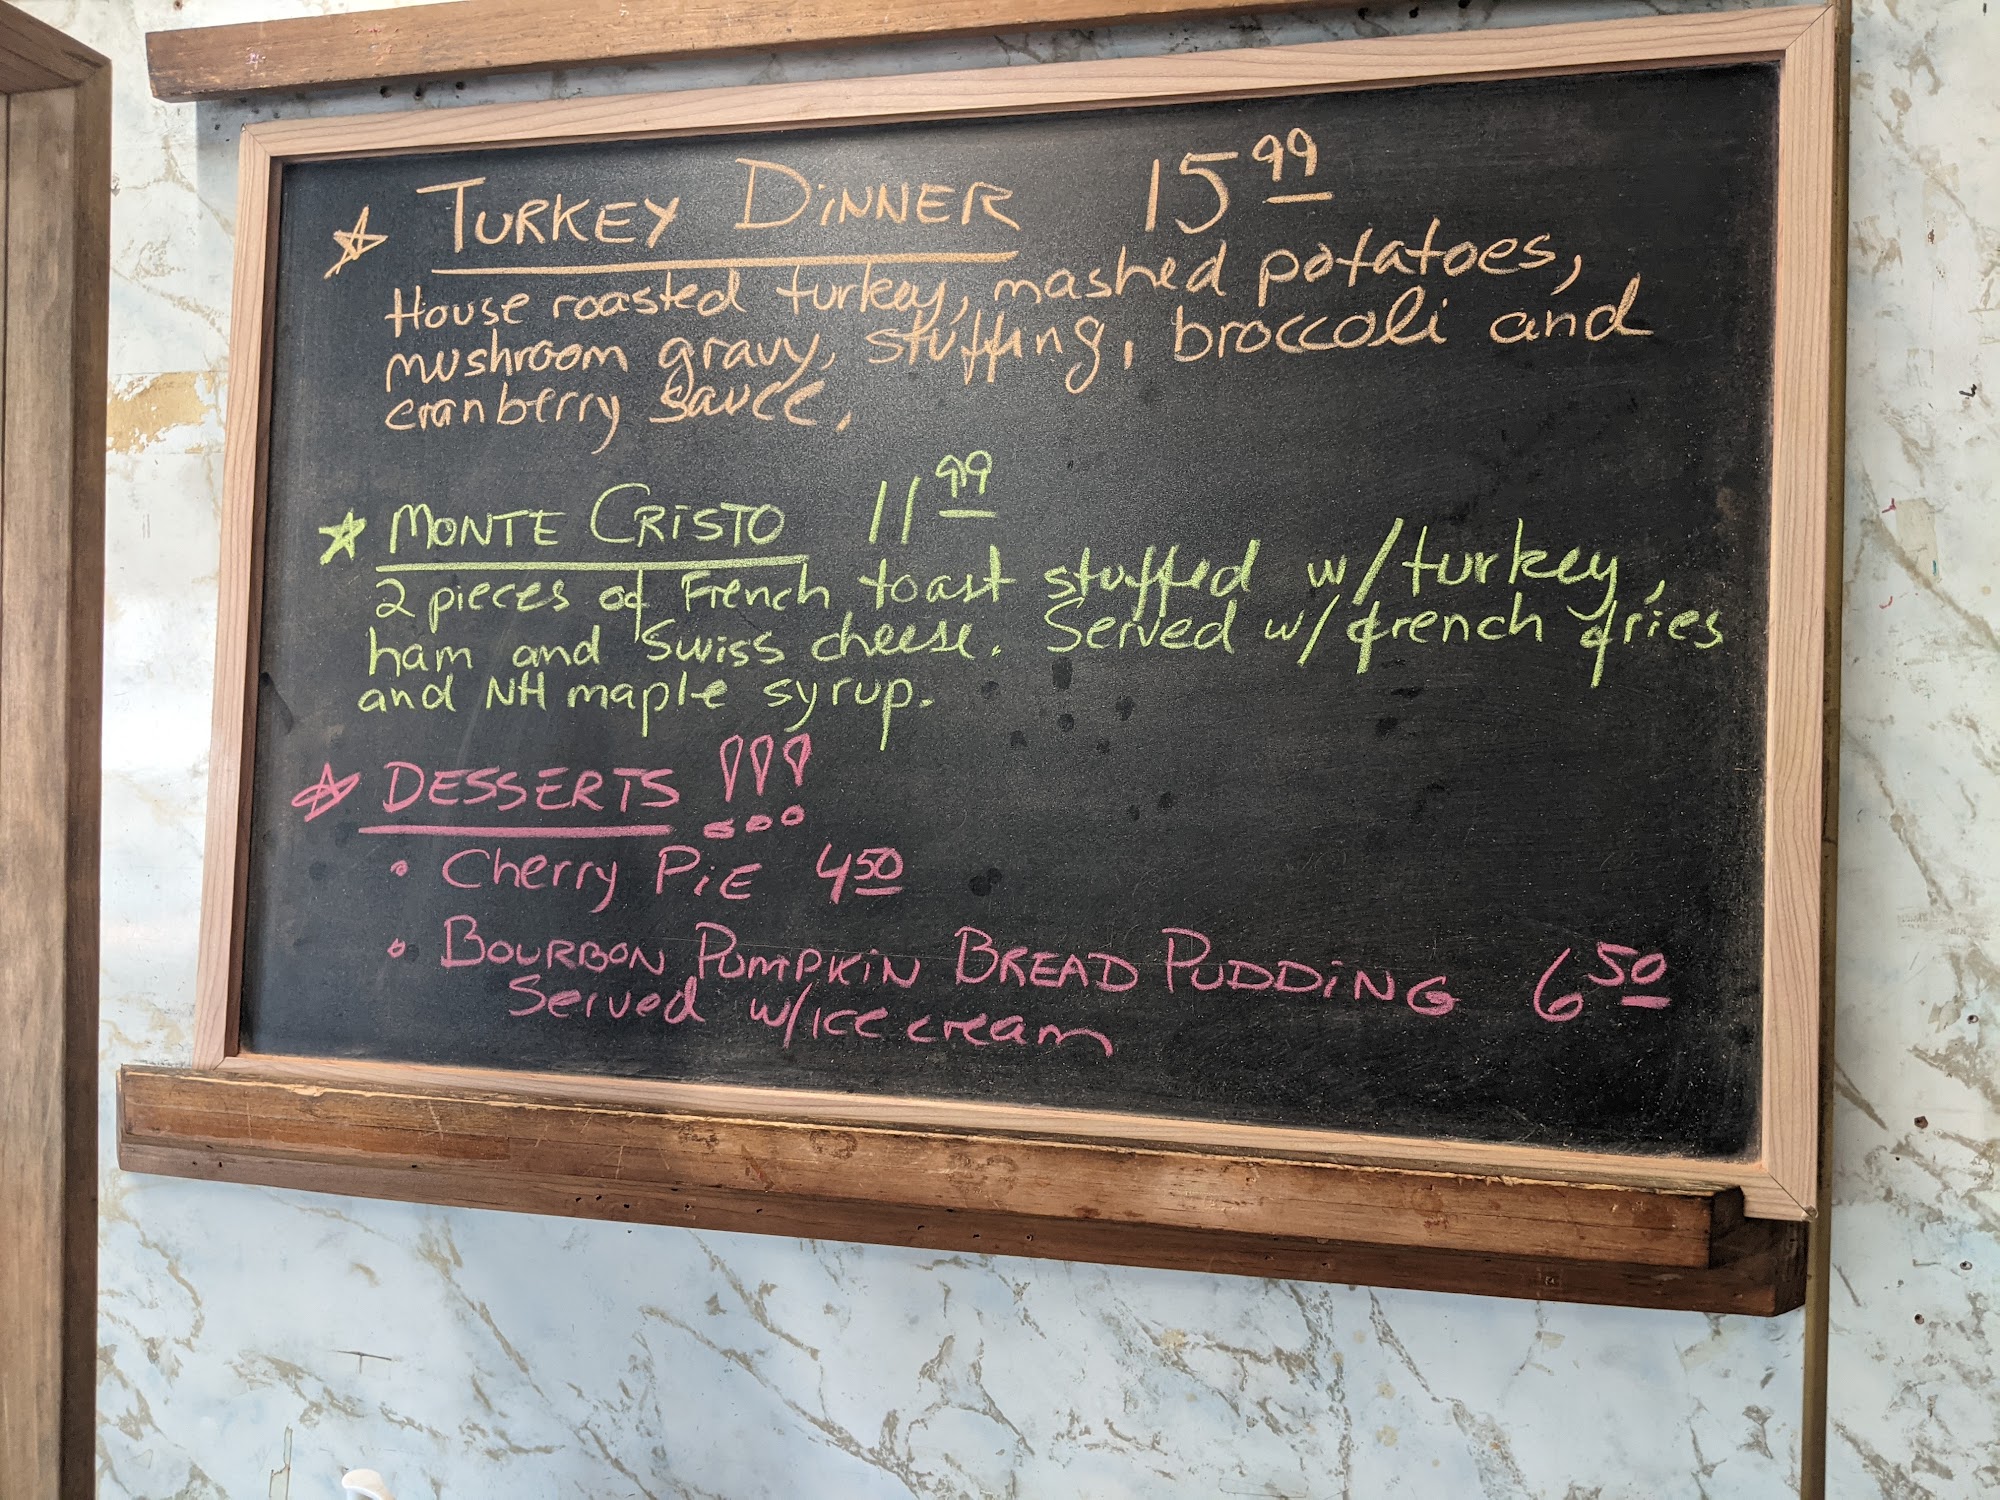 ☆ TURKEY DINNER 15.99
House roasted turkey, mashed potatoes,
mushroom gravy, stuffing, broccoli and
cranberry sauce.
☆ MONTE CRISTO 11.99
2 pieces of French toast stuffed w/turkey,
ham and Swiss cheese. Served w/french fries
and NH maple syrup.
☆ DESSERTS !!!
• Cherry PiE 4.50
• BOURBON PUMPKIN BREAD PUDDING 6.50
Served w/ice cream